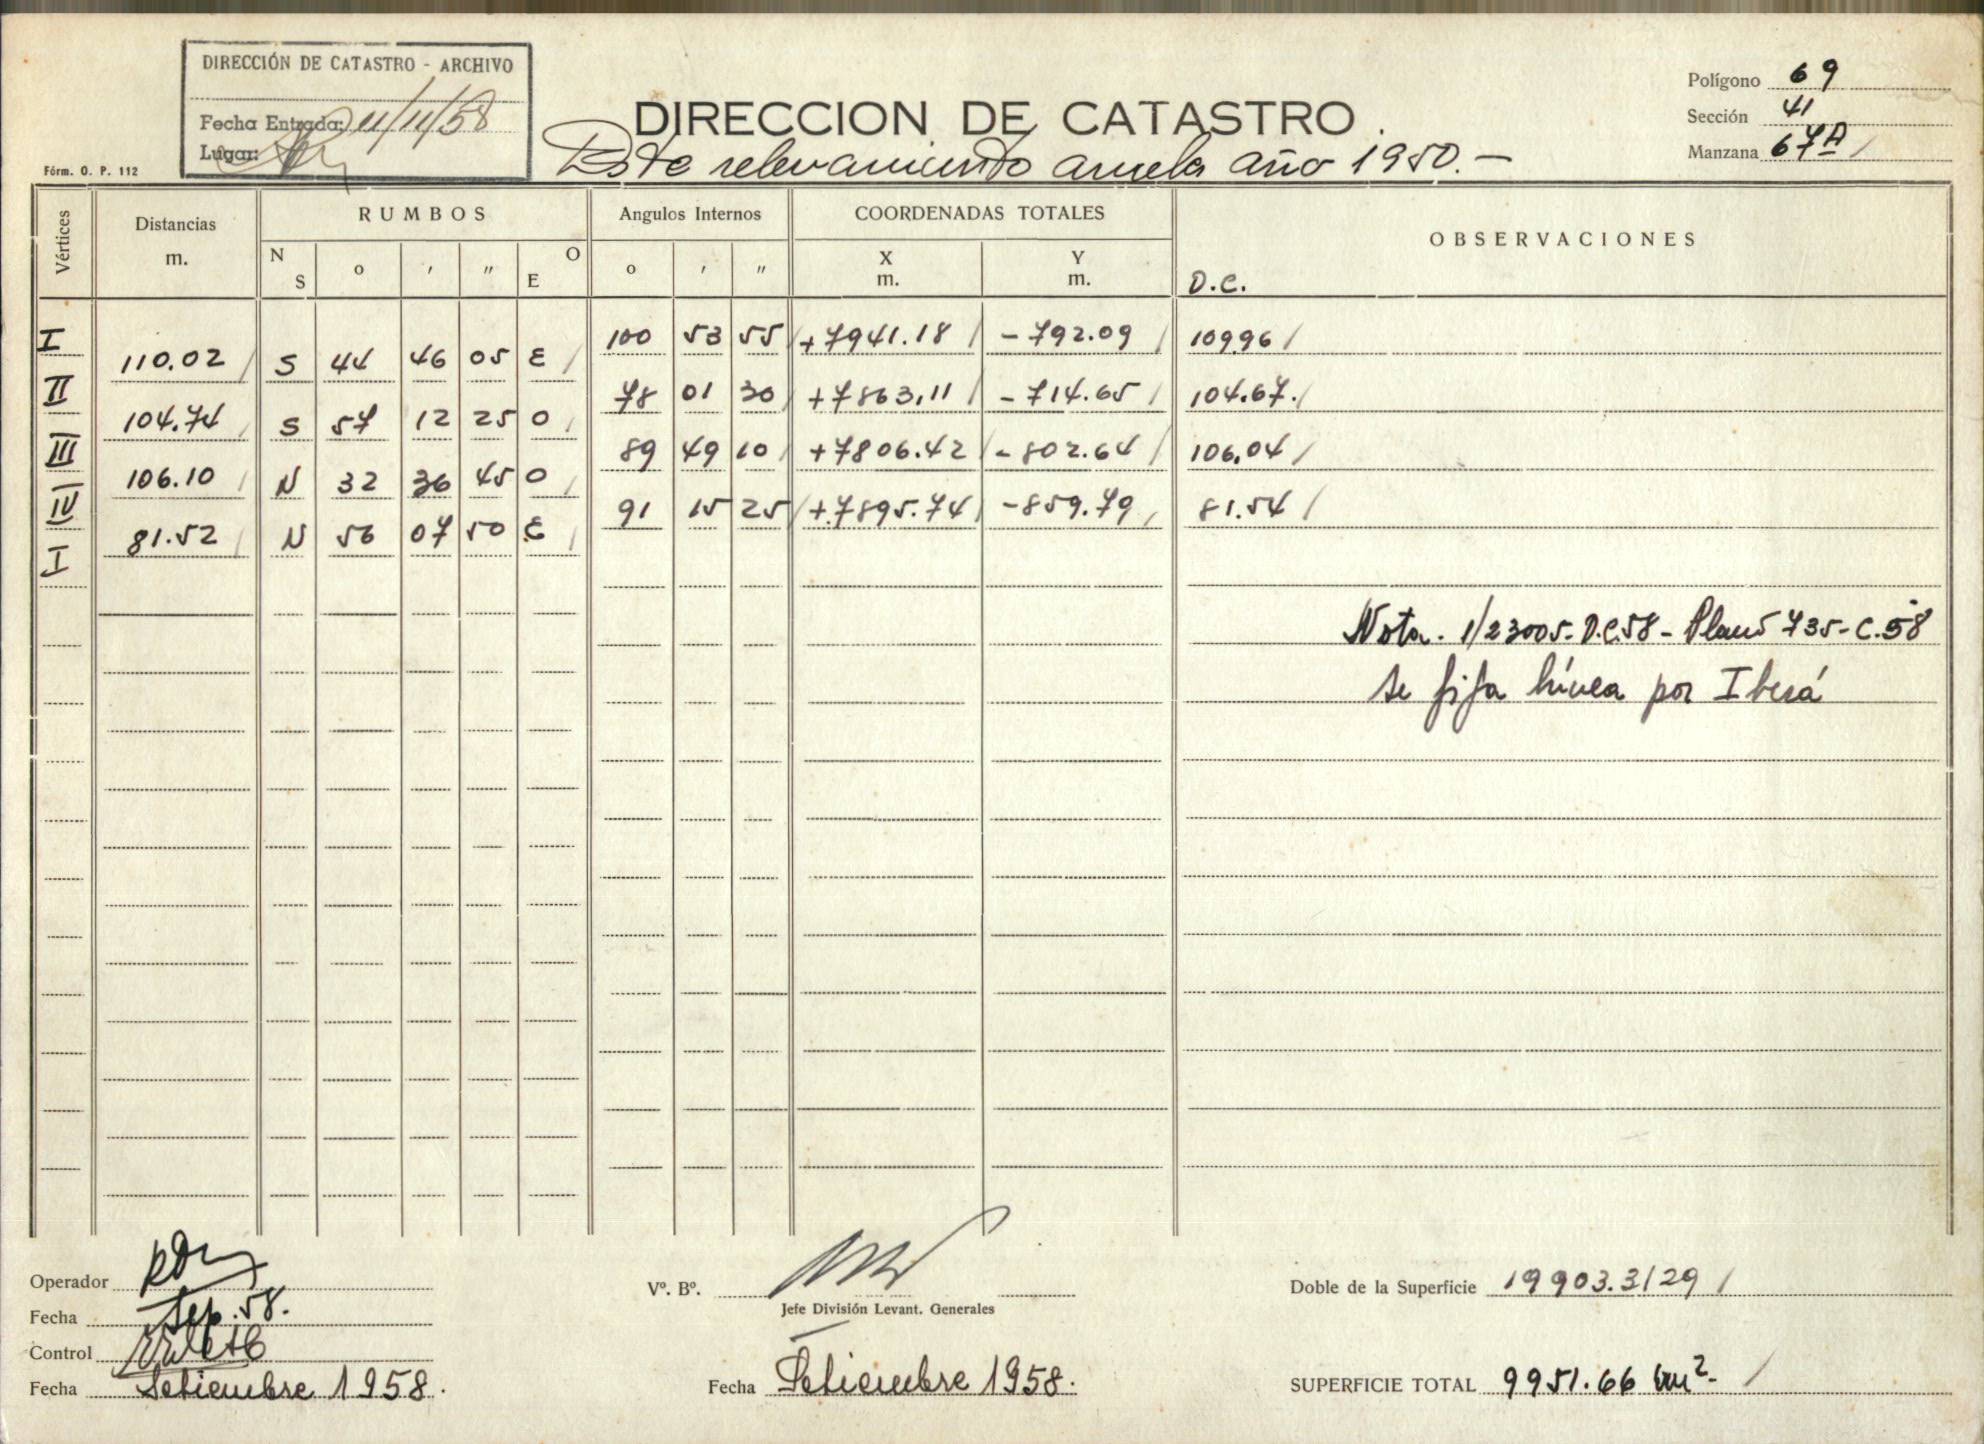 DIRECCIÓN DE CATASTRO - ARCHIVO
Fecha Entrada: 11/11/58
Lugar:
Fórm. O. P. 112
DIRECCION DE CATASTRO.
Este relevamiento anula año 1950.-
Polígono 69
Sección 41
Manzana 67A
Vértices
Distancias m.
RUMBOS
N S o ' " E O
Angulos Internos
o ' "
COORDENADAS TOTALES
X m. Y m.
OBSERVACIONES
D.C.
I 100 53 55 +7941.18 -792.09 109.96
110.02 S 44 46 05 E
II 78 01 30 +7863.11 -714.65 104.67.
104.74 S 57 12 25 O
III 89 49 10 +7806.42 -802.64 106.04
106.10 N 32 36 45 O
IV 91 15 25 +7895.74 -859.79 81.54
81.52 N 56 07 50 E
I
Nota. 1/23005-D.C.58 - Plano 735-C.58
se fija línea por Iberá
Operador
Fecha Sep. 58.
Control
Fecha Setiembre 1958.
Vº. Bº.
Jefe División Levant. Generales
Fecha Setiembre 1958.
Doble de la Superficie 19903.3129
SUPERFICIE TOTAL 9951.66 m².